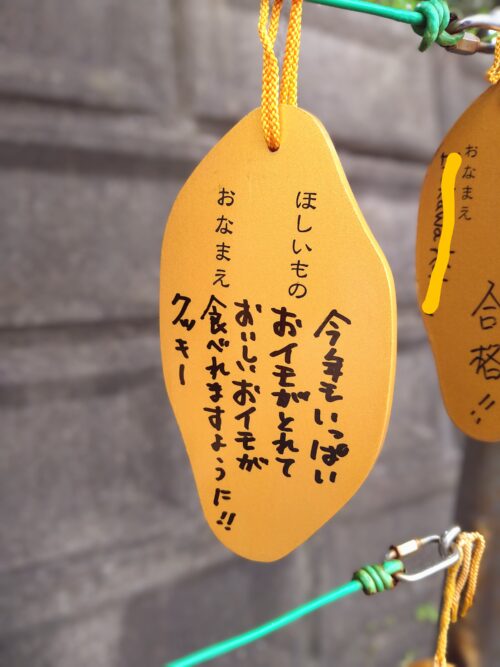 ほしいもの
今年もいっぱい
おイモがとれて
おいしいおイモが
食べれますように!!
おなまえ
クッキー
おなまえ
合格!!